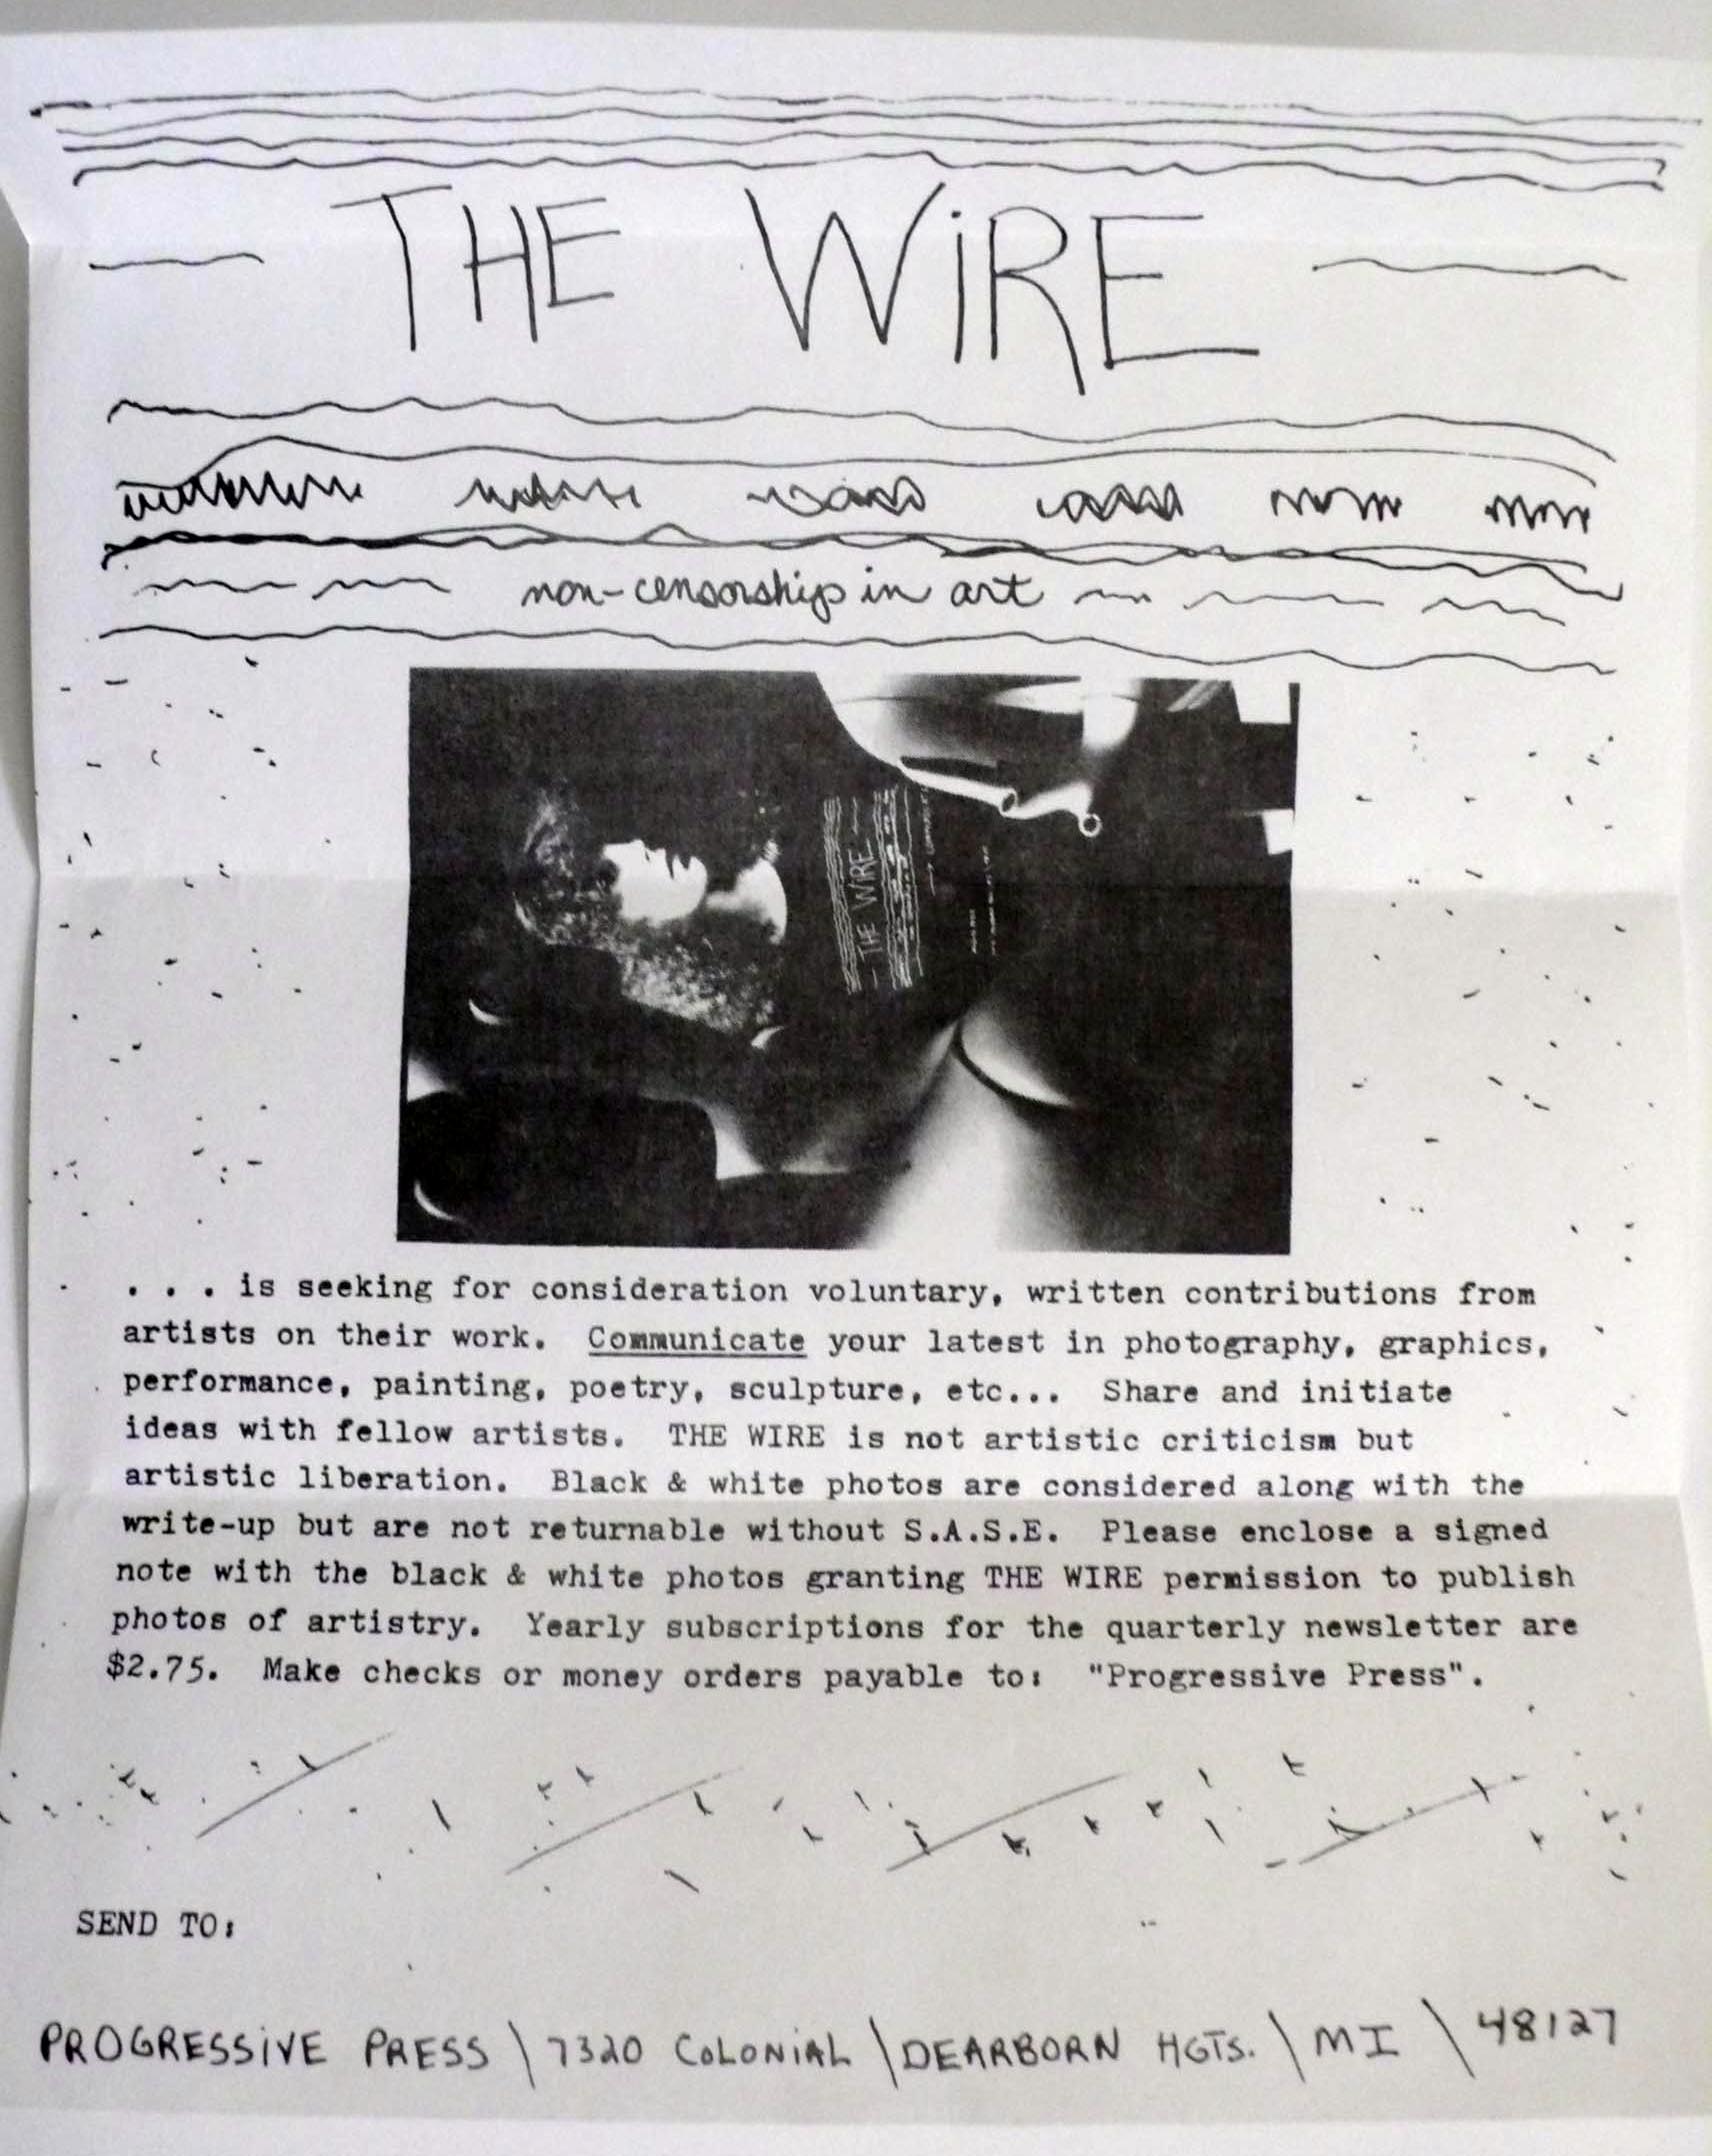 THE WiRE
non-censorship in art
THE WiRE
. . . is seeking for consideration voluntary, written contributions from
artists on their work.  Communicate your latest in photography, graphics,
performance, painting, poetry, sculpture, etc...  Share and initiate
ideas with fellow artists.  THE WIRE is not artistic criticism but
artistic liberation.  Black & white photos are considered along with the
write-up but are not returnable without S.A.S.E.  Please enclose a signed
note with the black & white photos granting THE WIRE permission to publish
photos of artistry.  Yearly subscriptions for the quarterly newsletter are
$2.75.  Make checks or money orders payable to:  "Progressive Press".
SEND TO:
PROGRESSiVE PRESS \ 7320 COLONiAL \ DEARBORN HGTS. \ MI \ 48127